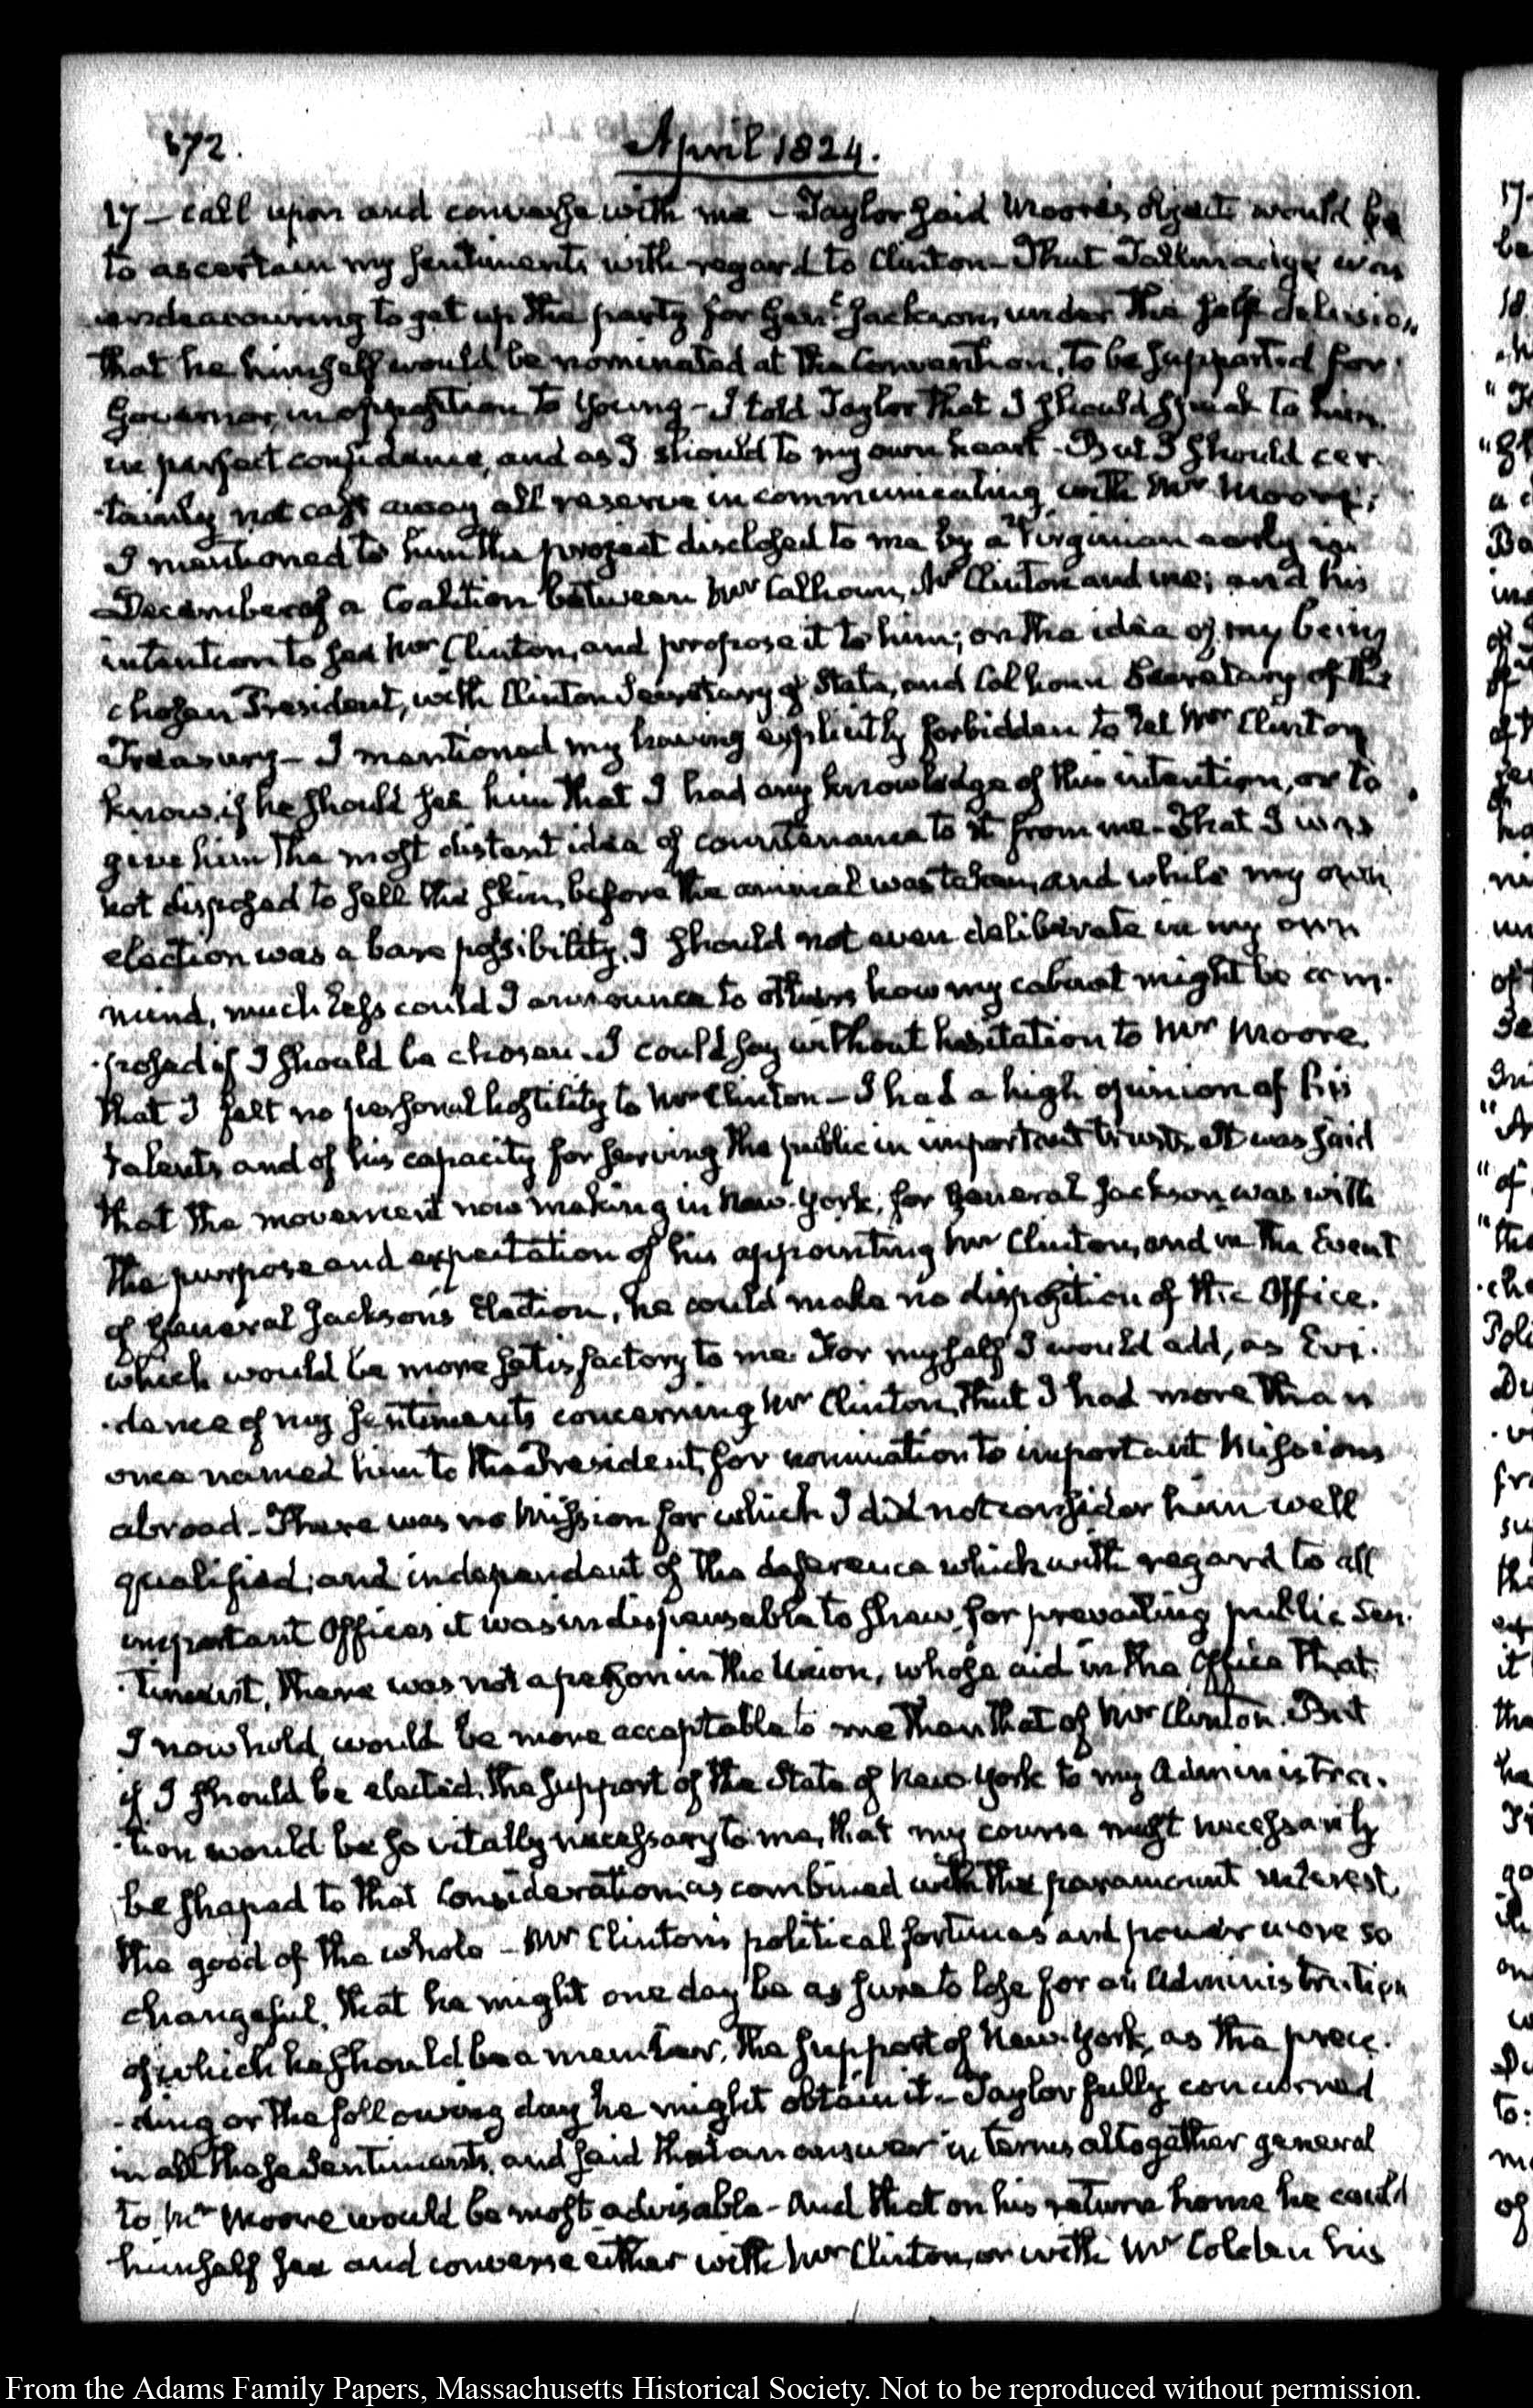 372.
April 1824.
17 — call upon and converse with me — Taylor said Moore's object would be
to ascertain my sentiments with regard to Clinton — That Tallmadge was
endeavouring to get up the party for Genl. Jackson, under the self delusion
that he himself would be nominated at the Convention, to be supported for
Governor, in opposition to Young — I told Taylor that I should speak to him
in perfect confidence, and as I should to my own heart — But I should cer-
-tainly not cast away all reserve in communicating with Mr Moore;
I mentioned to him the project disclosed to me by a Virginian early in
December of a Coalition between Mr Calhoun, Mr Clinton and me; and his
intention to see Mr Clinton, and propose it to him; on the idea of my being
chosen President, with Clinton Secretary of State, and Calhoun Secretary of the
Treasury — I mentioned my having explicitly forbidden to let Mr Clinton
know, if he should see him that I had any knowledge of this intention, or to
give him the most distant idea of countenance to it from me — That I was
not disposed to sell the skin, before the animal was taken, and while my own
election was a bare possibility, I should not even deliberate in my own
mind, much less could I announce to others how my cabinet might be com-
-posed if I should be chosen. I could say without hesitation to Mr Moore,
that I felt no personal hostility to Mr Clinton — I had a high opinion of his
talents and of his capacity for serving the public in important trusts. It was said
that the movement now making in New-York, for General Jackson was with
the purpose and expectation of his appointing Mr Clinton, and in the Event
of General Jackson's Election, he could make no disposition of the Office.
which would be more satisfactory to me. For myself I would add, as Evi-
-dence of my sentiments concerning Mr Clinton, that I had more than
once named him to the President, for nomination to important Missions
abroad — There was no Mission for which I did not consider him well
qualified; and independent of the deference which with regard to all
important Offices it was indispensable to shew, for prevailing public Sen-
-timent, there was not a person in the Union, whose aid in the Office that
I now hold, would be more acceptable to me than that of Mr Clinton. But
if I should be elected, the support of the State of New-York to my Administra-
-tion would be so vitally necessary to me, that my course must necessarily
be shaped to that Consideration, as combined with the paramount interest,
the good of the whole — Mr Clinton's political fortunes and power were so
changeful, that he might one day be as sure to lose for an Administration
of which he should be a member, the support of New-York, as the prece-
-ding or the following day he might obtain it — Taylor fully concurred
in all these Sentiments, and said that an answer in terms altogether general
to Mr Moore would be most advisable — And that on his return home he could
himself see and converse either with Mr Clinton, or with Mr Colden his
From the Adams Family Papers, Massachusetts Historical Society. Not to be reproduced without permission.